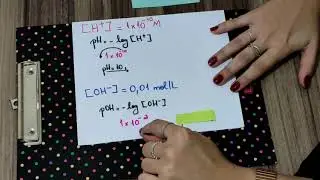 [H⁺] = 1x10⁻¹⁰ M
pH = - log [H⁺]
1x10⁻
pH = 10
[OH⁻] = 0,01 mol/L
pOH = - log [OH⁻]
1x10⁻²